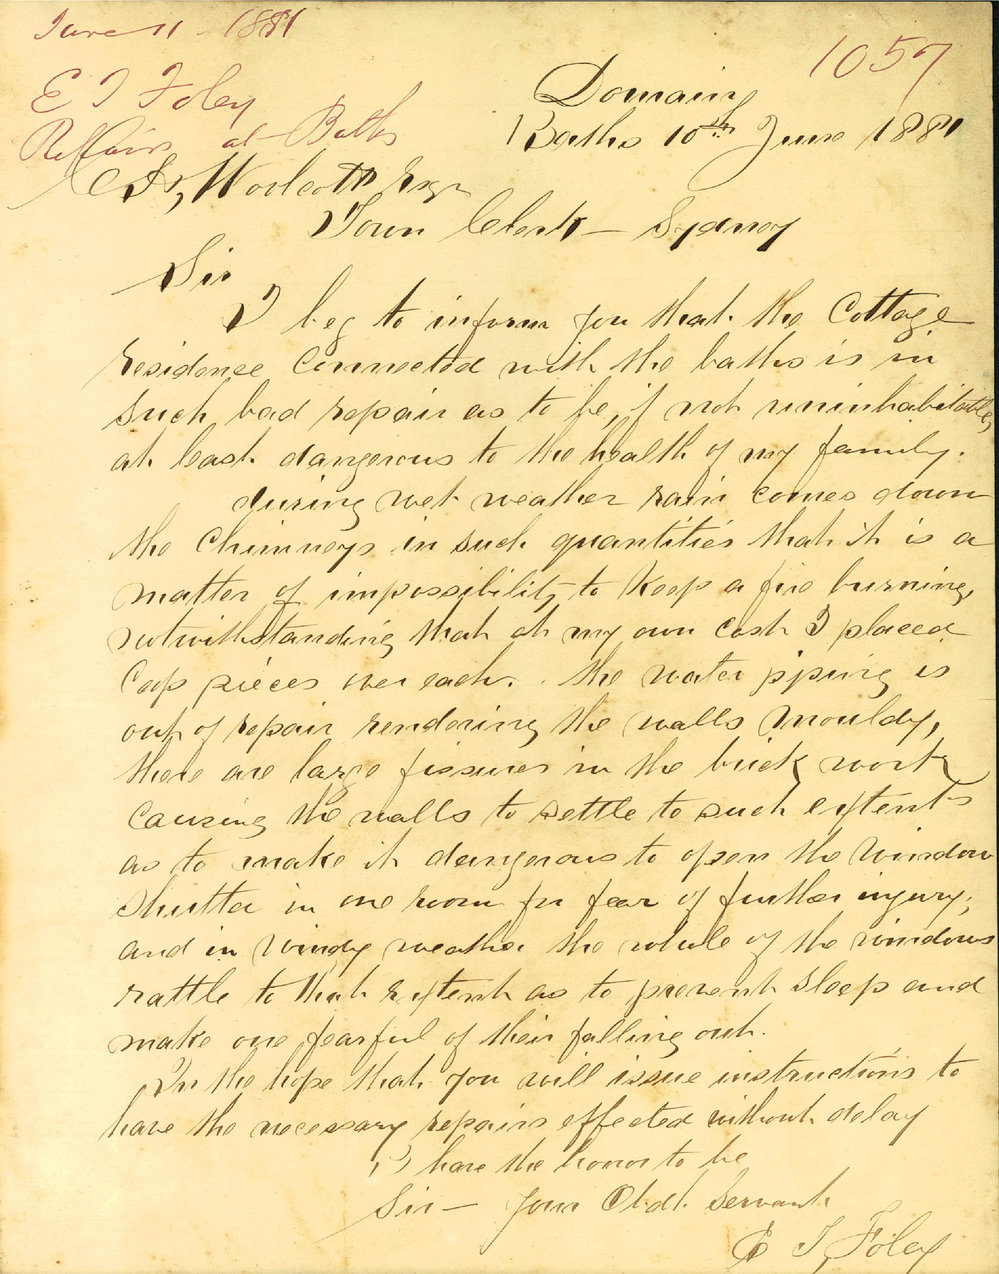 June 11 1881
1057
E T Foley
Repairs at Baths
Domain
Baths 10th June 1881
C. H. Woolcott Esqr
Town Clerk – Sydney
Sir
I beg to inform you that the Cottage
residence connected with the baths is in
such bad repair as to be, if not uninhabitable,
at least dangerous to the health of my family.
during wet weather rain comes down
the Chimneys in such quantities that it is a
matter of impossibility to keep a fire burning,
notwithstanding that at my own cost I placed
Cap pieces over each. the water piping is
out of repair rendering the walls mouldy,
there are large fissures in the brick work
causing the walls to settle to such extents
as to make it dangerous to open the window
shutter in one room for fear of further injury;
and in windy weather the whole of the windows
rattle to that extent as to prevent sleep and
make one fearful of their falling out.
In the hope that you will issue instructions to
have the necessary repairs effected without delay
I have the honor to be
Sir – your Obdt. Servant
E T, Foley